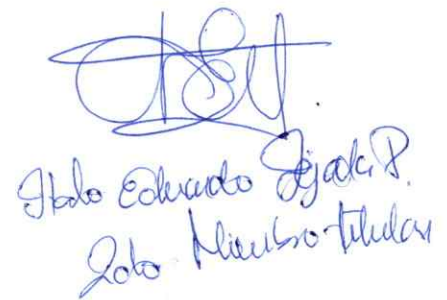 Italo Eduardo Tejada P.
2do Miembro titular